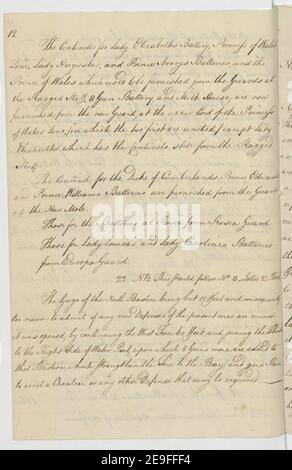 12
The Centinels for Lady Elizabeths Battery, Princess of Wales
Line, Lady Augustas, and Prince Henrys Batteries, and the
Prince of Wales which used to be furnished from the Guards at
the Ragged Staff, 8 Gun Battery and Milk House, are now
furnished from the new Guard, at the upper End of the Princess
of Wales Line, in which the two first are united, except Lady
Elizabeth which has the Centinels still from the Ragged
Staff.
The Centinels for the Duke of Cumberlands Prince Edwards
and Prince Williams Batteries are furnished from the Guard
at the New Mole.
Those for the Batteries at Rosia from Rosia Guard
Those for Lady Louisas and Lady Carolines Batteries
from Europa Guard.
22. NB. This should follow No. 3. Letter E.
The Gorge of the North Bastion being but 17 feet and consequently
too narrow to admit of any new Defenses of the present mean
it was opened, by continuing the West Flank 80 feet and joining the
to the Right Side of Water Port, upon which 8 Guns more are added to
that Bastion, which strengthen the Fire to the Bay, and gave Room
to erect a Cavalier or any other Defense that may be required
2E9FFF4